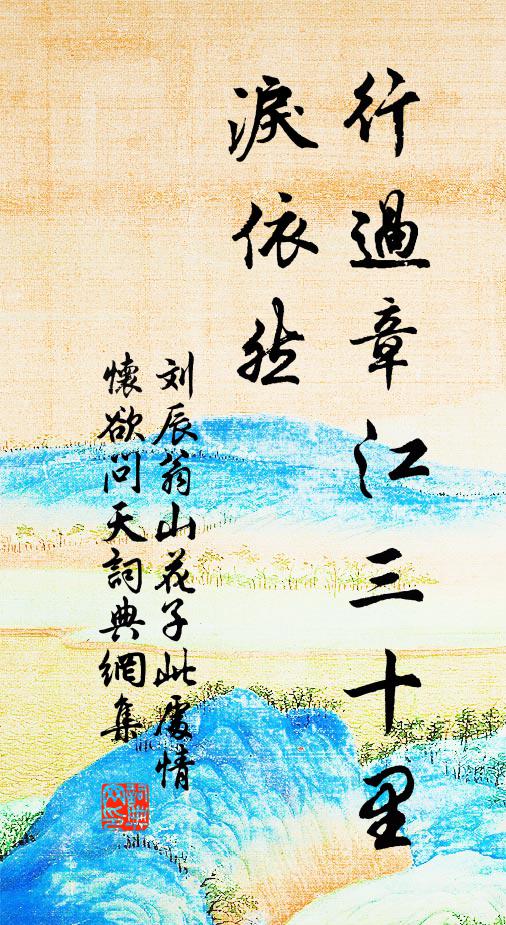 行過章江三十里
淚依然
刘辰翁山花子此處情
懷欲問天詞典網集